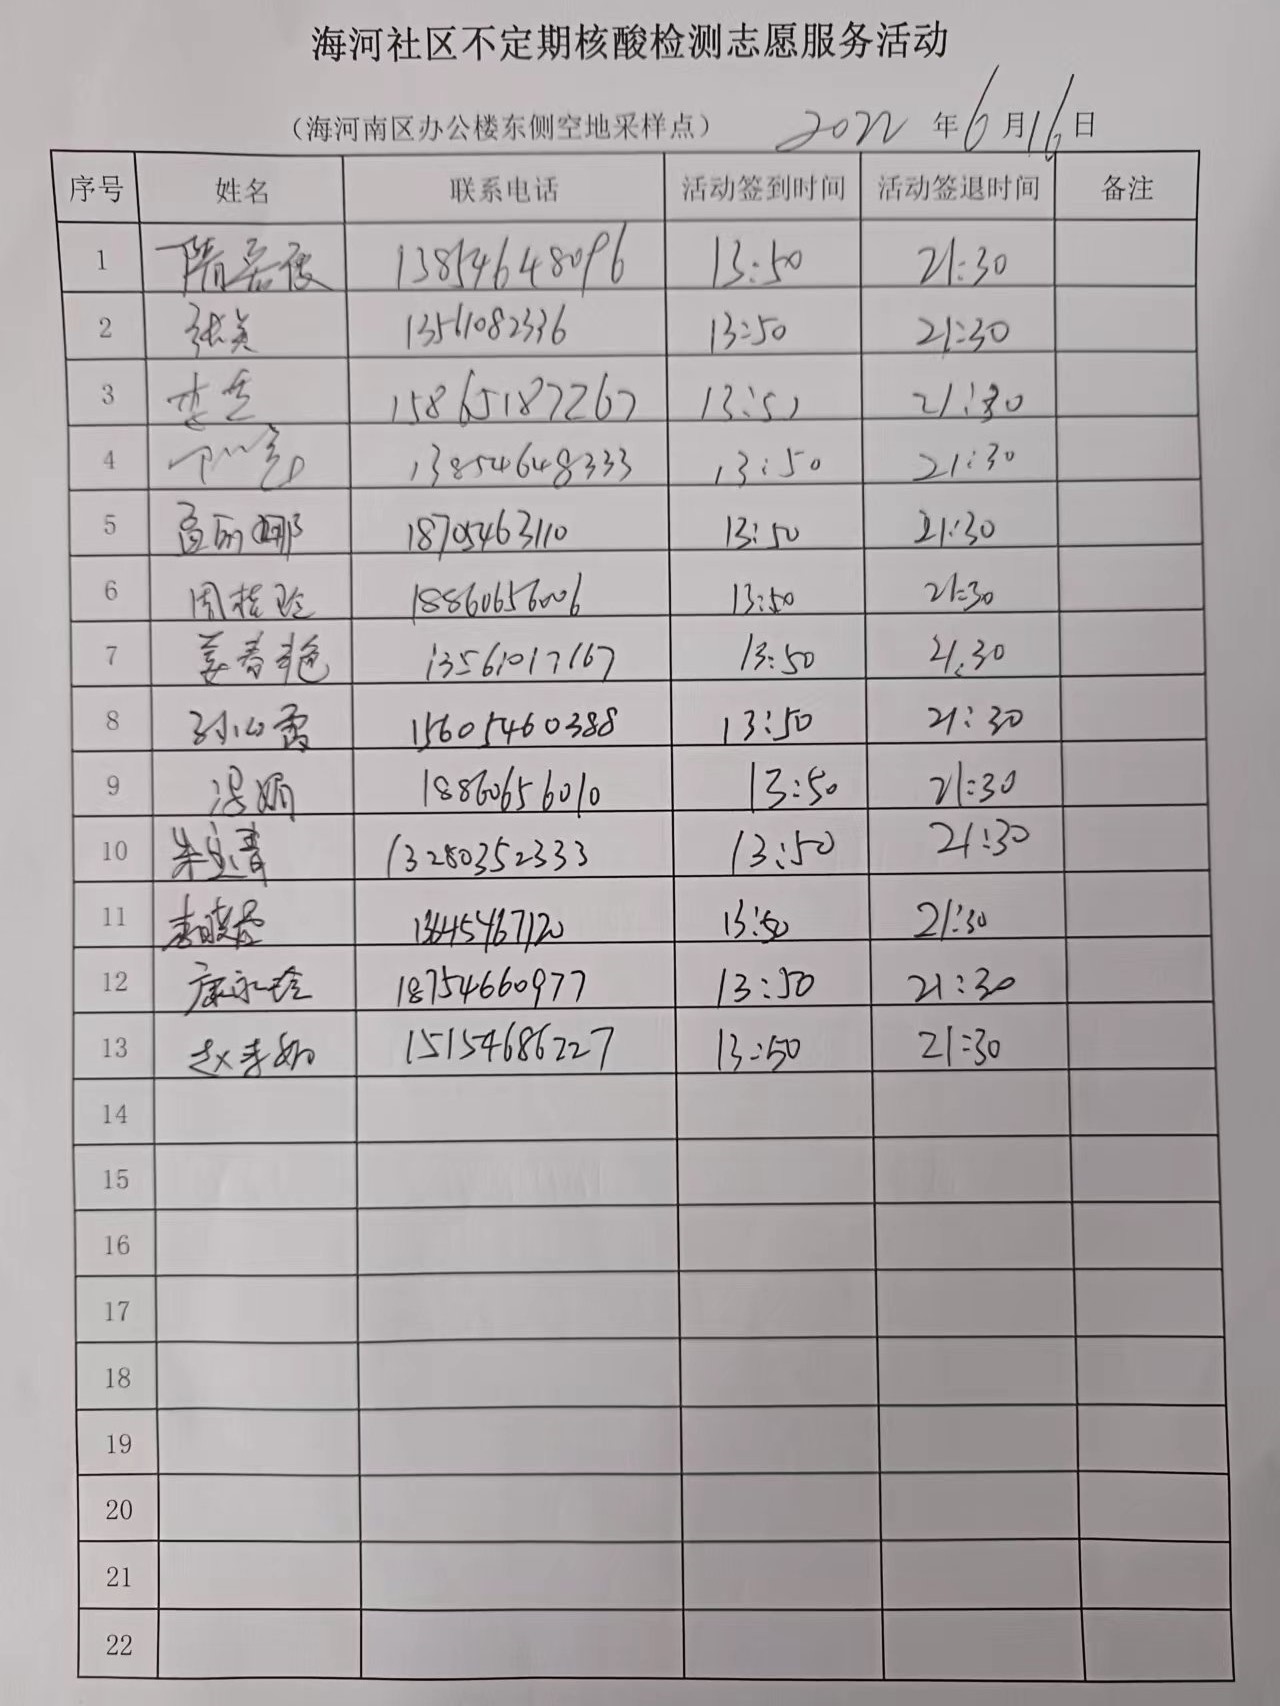 海河社区不定期核酸检测志愿服务活动
（海河南区办公楼东侧空地采样点） 2022 年 6 月 16 日
序号 姓名 联系电话 活动签到时间 活动签退时间 备注
1 13854648096 13:50 21:30
2 张美 13561082336 13:50 21:30
3 15865187267 13:50 21:30
4 13854648333 13:50 21:30
5 18705463110 13:50 21:30
6 周桂玲 18860656006 13:50 21:30
7 姜春艳 13561017167 13:50 21:30
8 孙心雷 15605460388 13:50 21:30
9 冯娟 18860656010 13:50 21:30
10 朱宝青 13280352333 13:50 21:30
11 李晓霞 13645467120 13:50 21:30
12 康永玲 18754660977 13:50 21:30
13 赵孝娜 15154686227 13:50 21:30
14
15
16
17
18
19
20
21
22